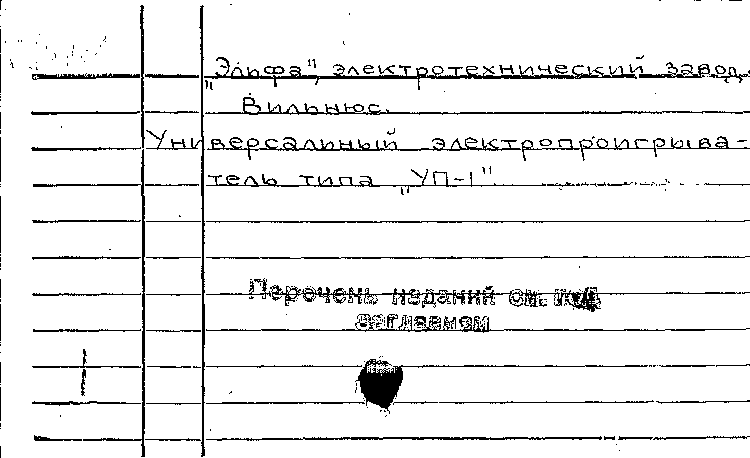 „Эльфа", электротехнический завод.
Вильнюс.
Универсальный электропроигрыва-
тель типа „УП-1"
Перечень изданий см. под
заглавием